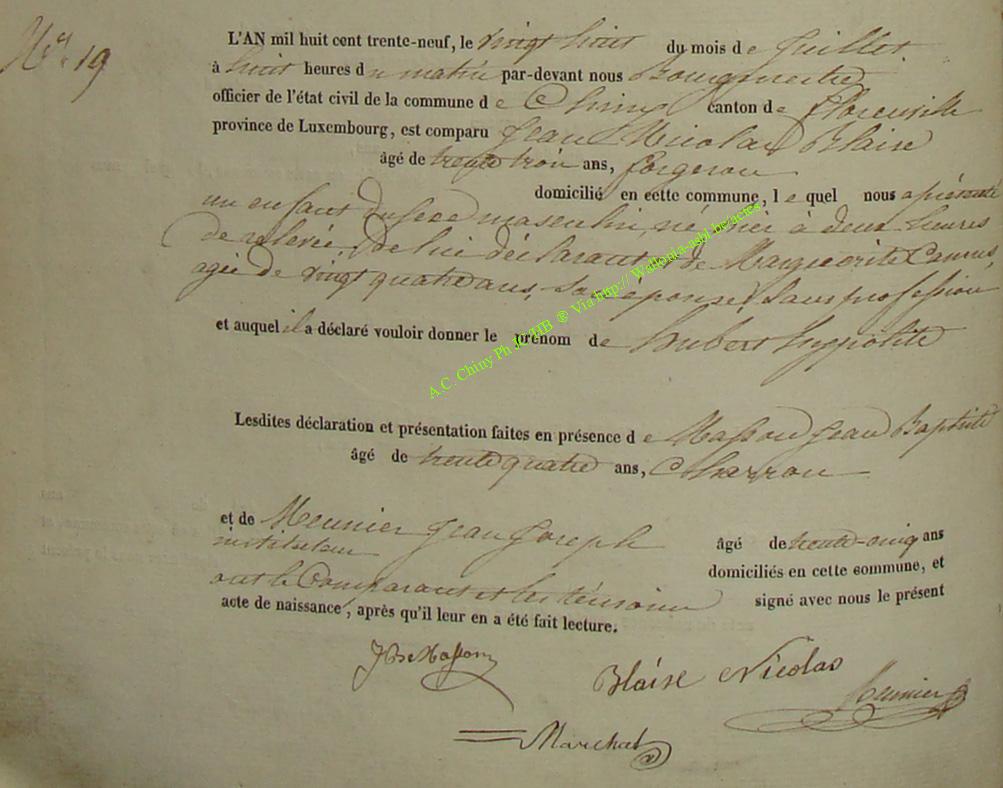 N° 19
L'AN mil huit cent trente-neuf, le vingt huit du mois de Juillet
à huit heures du matin par-devant nous Bourgmestre
officier de l'état civil de la commune de Chiny canton de Florenville
province de Luxembourg, est comparu Jean Nicolas Blaise
âgé de trente trois ans, forgeron
domicilié en cette commune, lequel nous a présenté
un enfant du sexe masculin, né hier à deux heures
de relevée, de lui déclarant et de Marguerite Camus,
agée de vingt quatre ans, son épouse, sans profession
et auquel il a déclaré vouloir donner le prénom de hubert hyppolite
Lesdites déclaration et présentation faites en présence de Masson Jean Baptiste
âgé de trente quatre ans, Charron
et de Meunier Jean Joseph âgé de trente-cinq ans
instituteur domiciliés en cette commune, et
ont le Comparant et les témoins signé avec nous le présent
acte de naissance, après qu'il leur en a été fait lecture.
JB Masson
Blaise Nicolas
Meunier
Marchal
A.C. Chiny Ph JC HB ® Via http:// Wallonia-asbl.be/actes